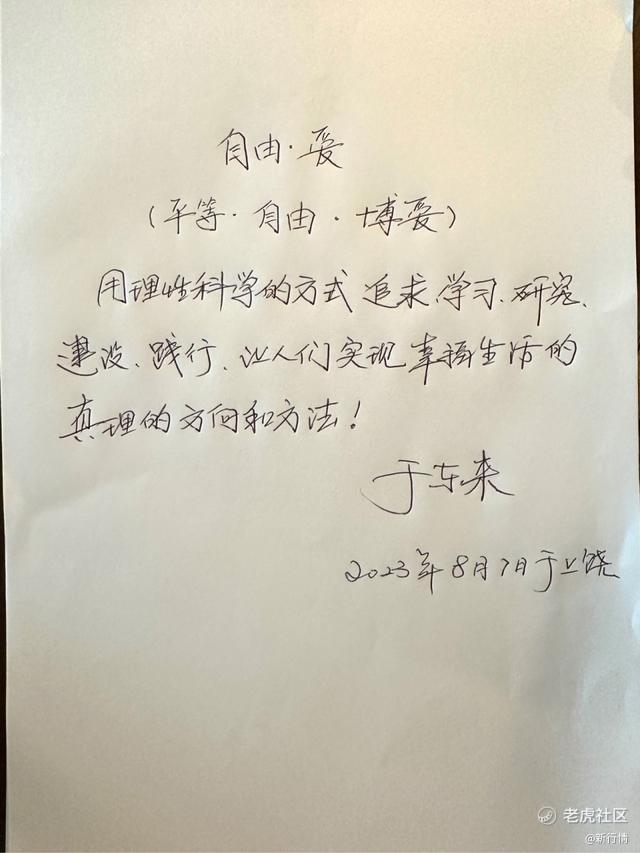 自由·爱
（平等·自由·博爱）
用理性科学的方式追求、学习、研究、
建设、践行、让人们实现幸福生活的
真理的方向和方法！
于东来
2023年8月7日于上饶
老虎社区
@新行情